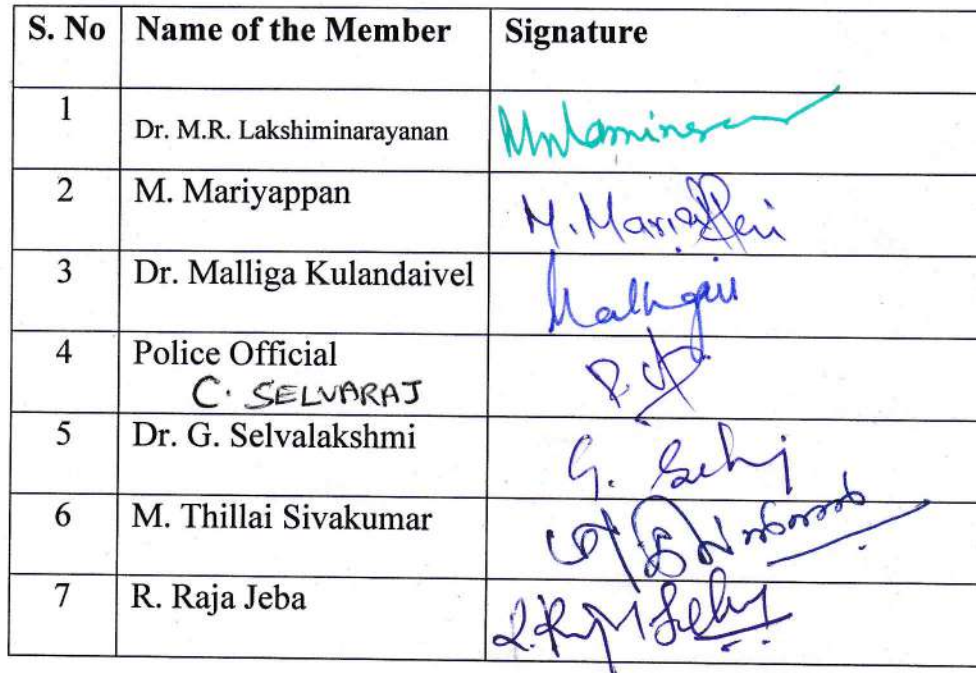 S. No Name of the Member Signature
1 Dr. M.R. Lakshiminarayanan
2 M. Mariyappan M.
3 Dr. Malliga Kulandaivel
4 Police Official
C. SELVARAJ
5 Dr. G. Selvalakshmi G.
6 M. Thillai Sivakumar
7 R. Raja Jeba